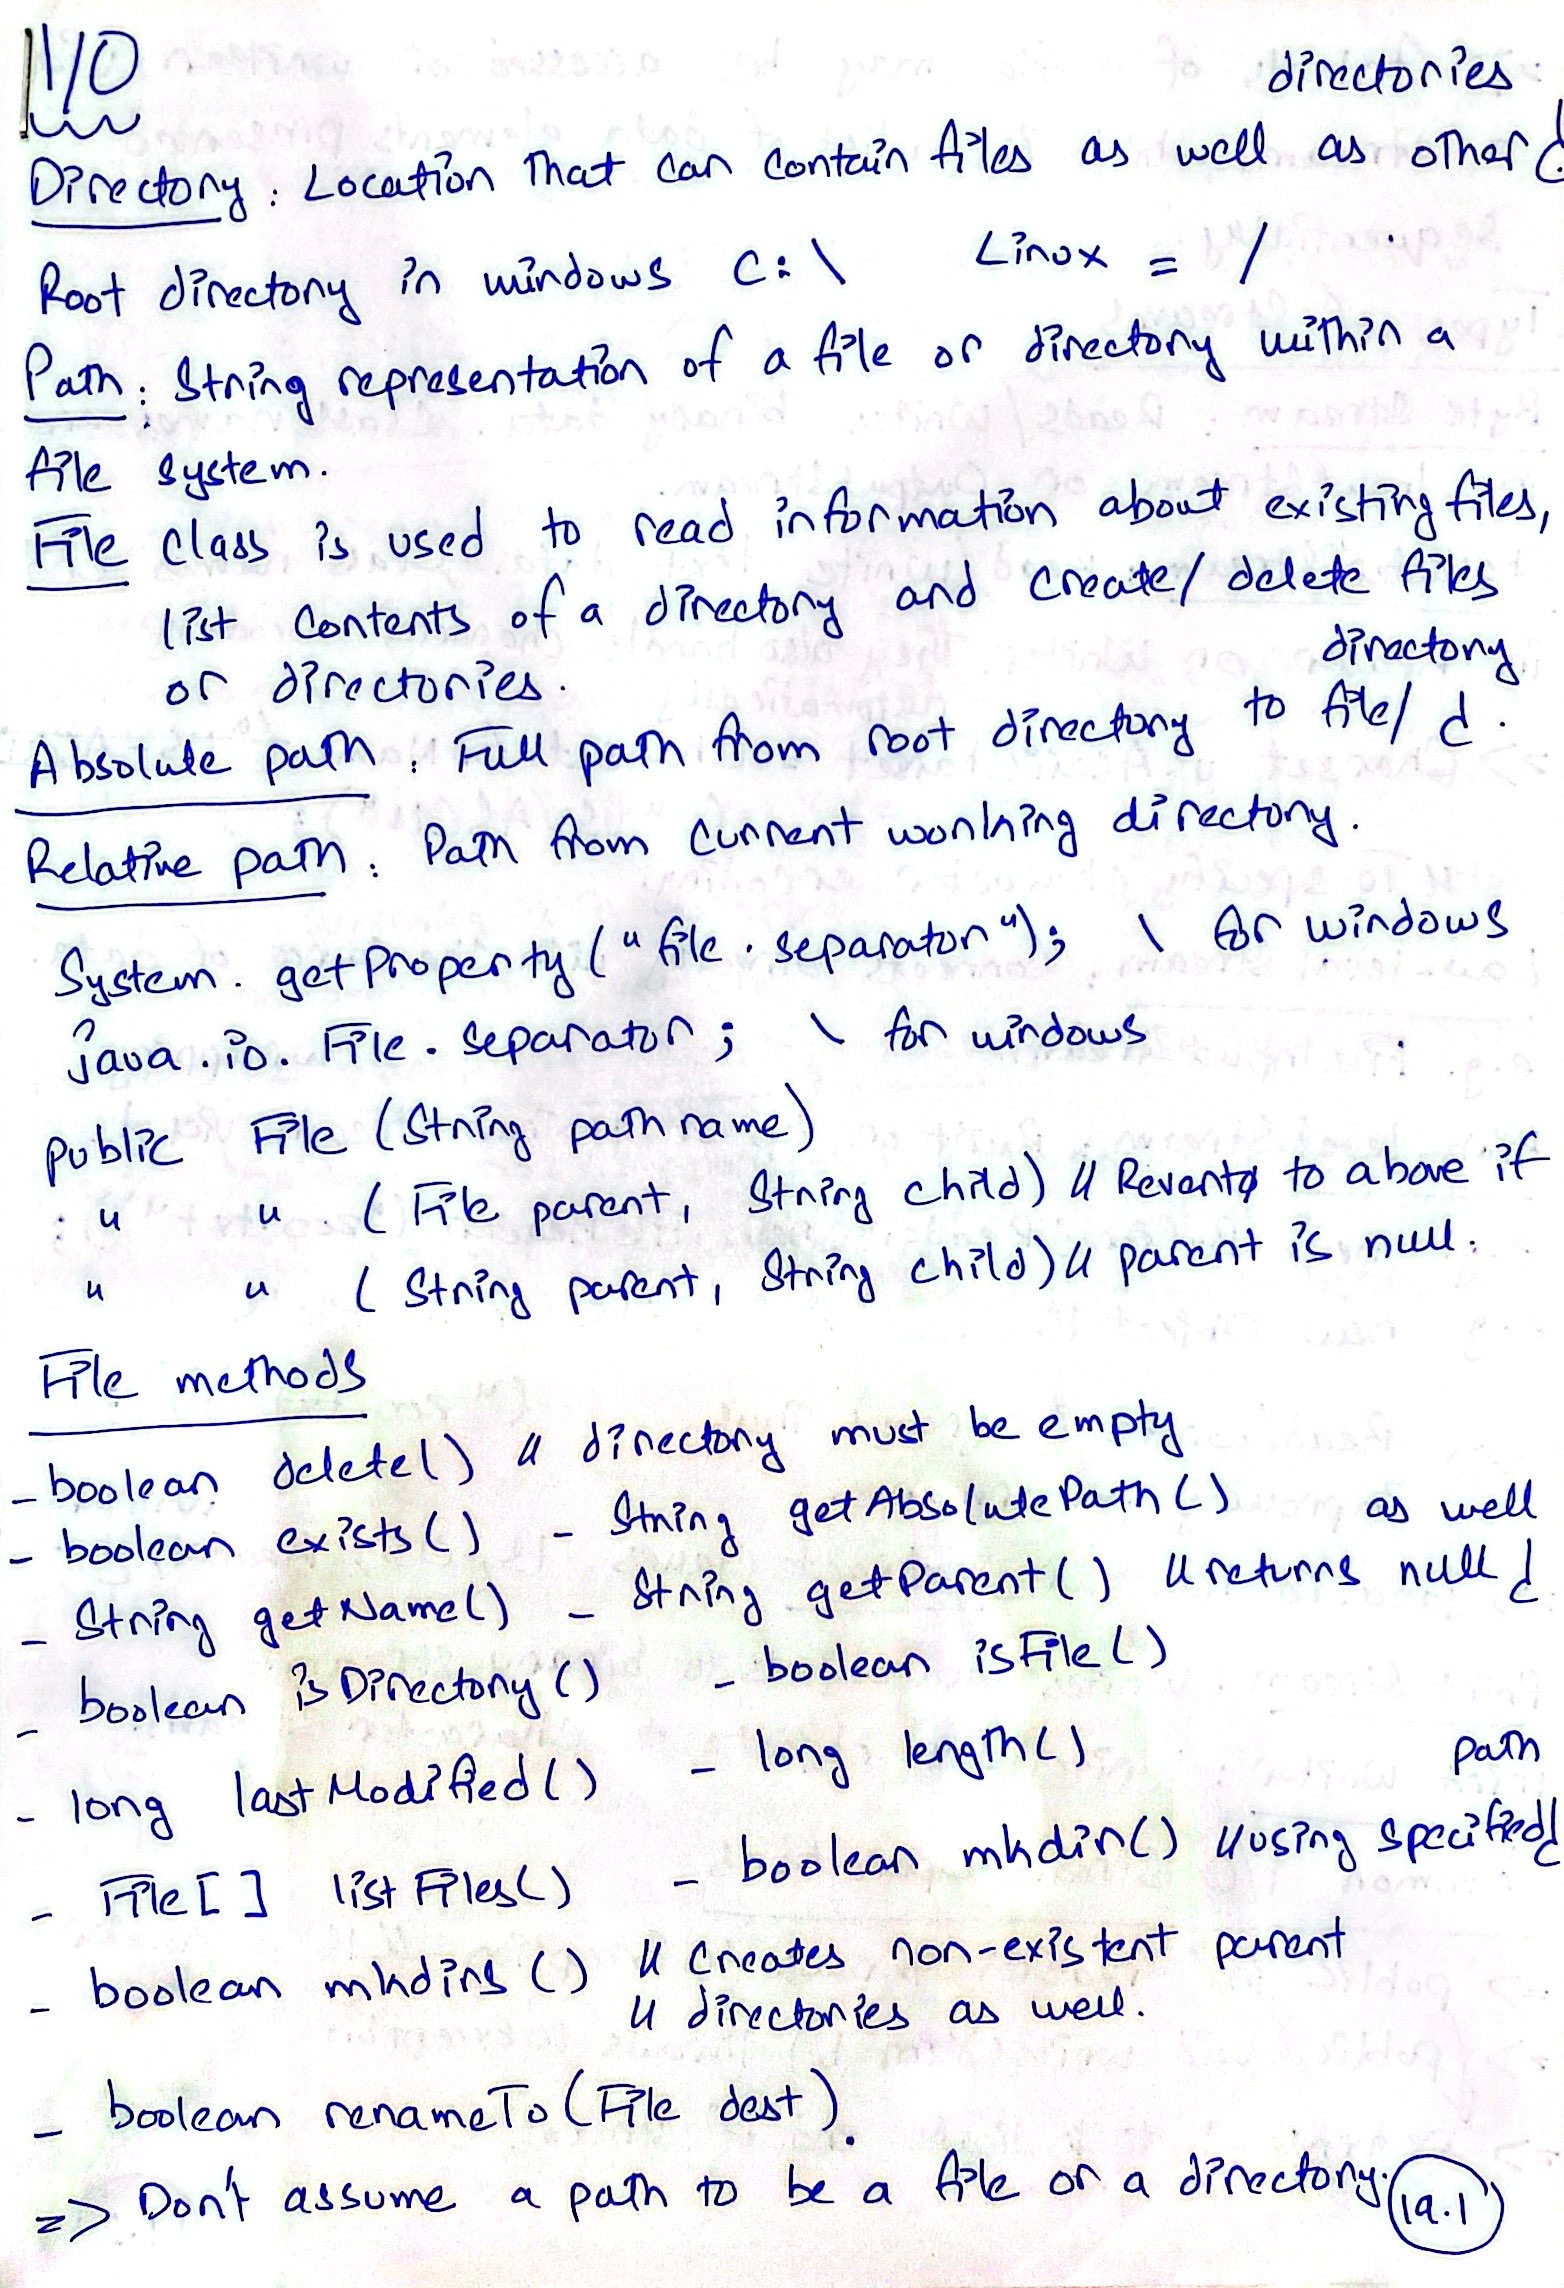 I/O
Directory : Location that can contain files as well as other directories
Root directory in windows C:\ Linux = /
Path : String representation of a file or directory within a
file system.
File class is used to read information about existing files,
list contents of a directory and create/ delete files
or directories.
Absolute path : Full path from root directory to file/ directory.
Relative path : Path from current working directory.
System.getProperty("file.separator"); \ for windows
java.io.File.separator; \ for windows
public File (String pathname)
" " ( File parent, String child) // Reverts to above if
" " ( String parent, String child) // parent is null.
File methods
- boolean delete() // directory must be empty
- boolean exists() - String getAbsolutePath()
- String getName() - String getParent() // returns null as well
- boolean isDirectory() - boolean isFile()
- long lastModified() - long length()
- File[] listFiles() - boolean mkdir() // using specified path
- boolean mkdirs() // creates non-existent parent
// directories as well.
- boolean renameTo(File dest).
=> Don't assume a path to be a file or a directory.
19.1